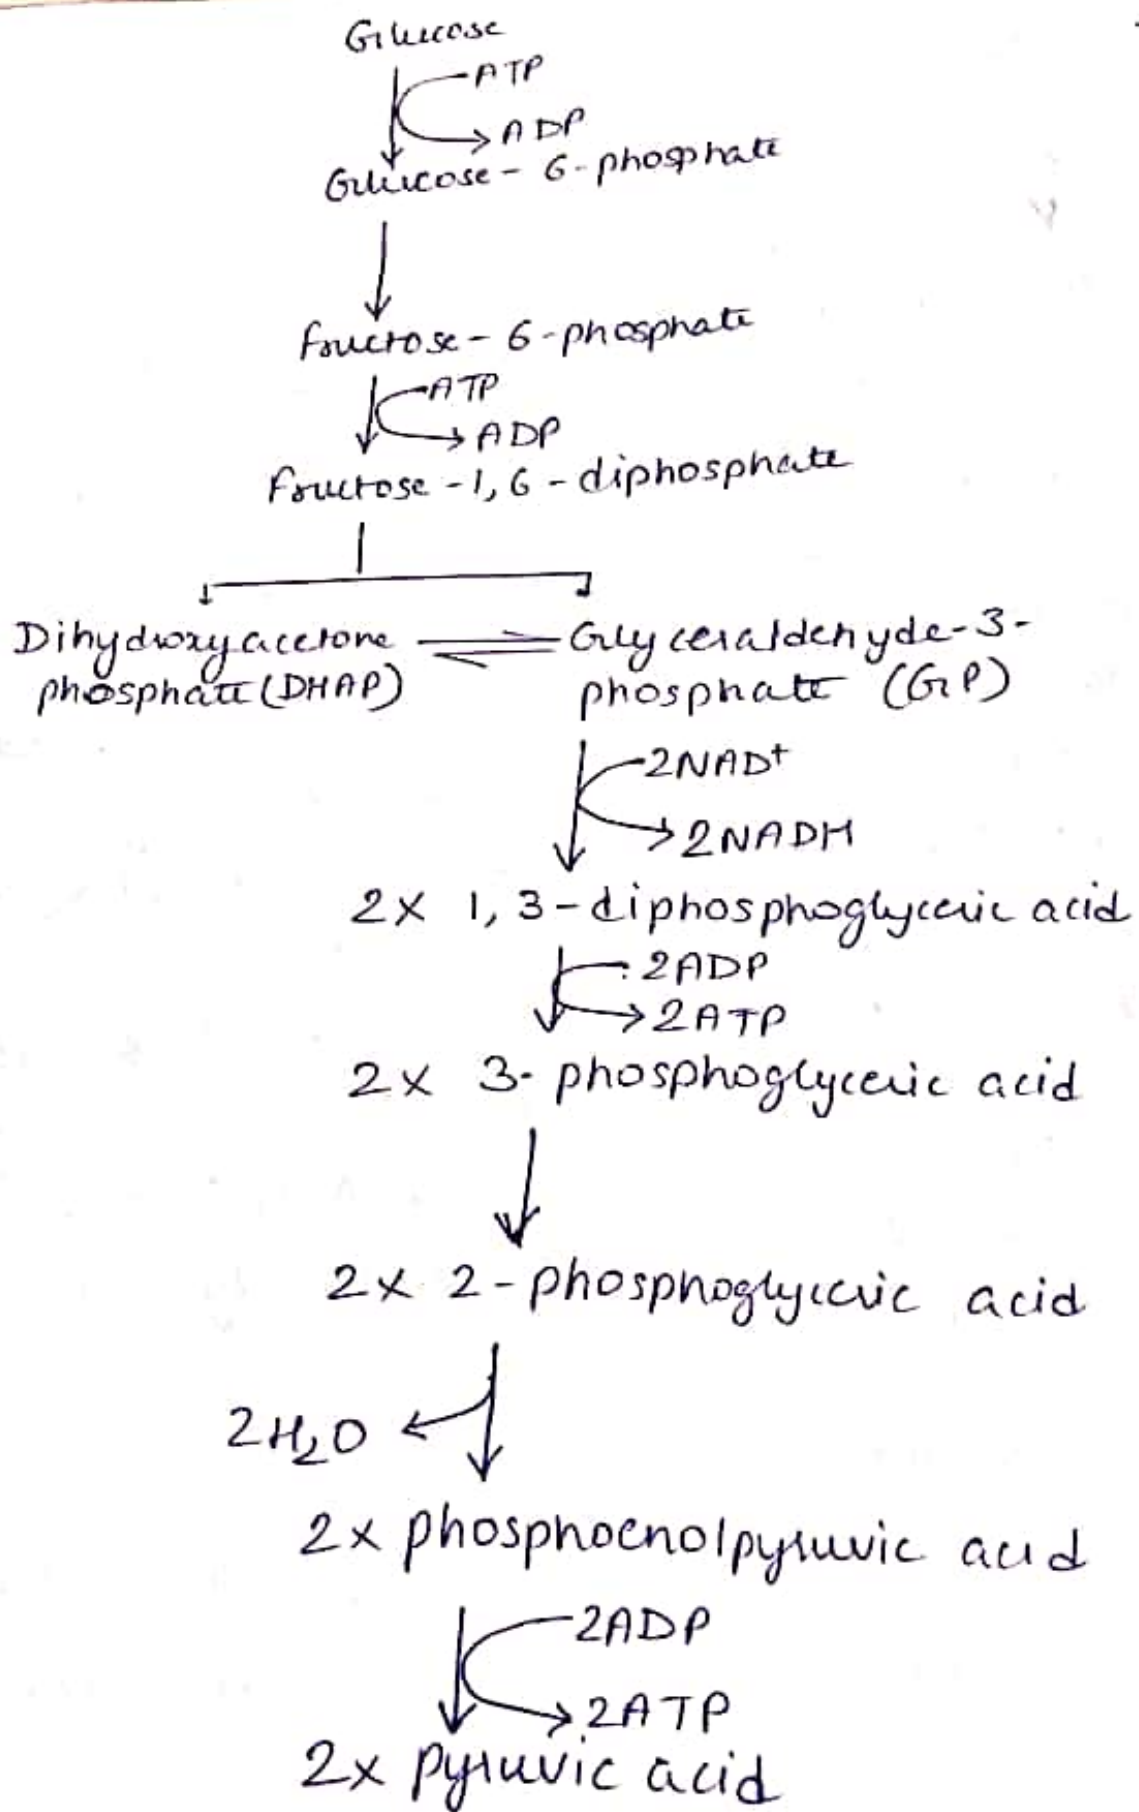 Glucose
ATP
ADP
Glucose - 6-phosphate
fructose - 6-phosphate
ATP
ADP
fructose -1,6 - diphosphate
Dihydroxyacetone
phosphate (DHAP)
Glyceraldehyde-3-
phosphate (GP)
2NAD+
2NADH
2x 1,3-diphosphoglyceric acid
2ADP
2ATP
2x 3-phosphoglyceric acid
2x 2-phosphoglyceric acid
2H2O
2x phosphoenolpyruvic acid
2ADP
2ATP
2x pyruvic acid